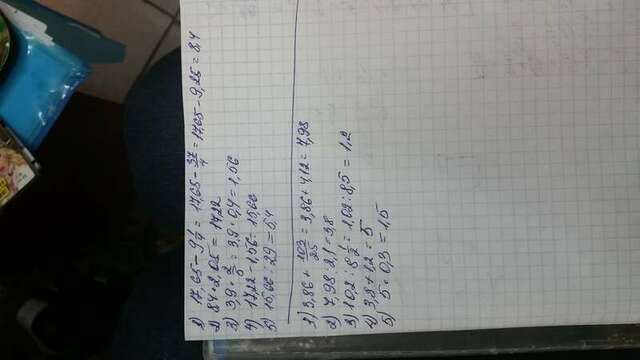 1) 17,65 - 9 1/4 = 17,65 - 37/4 = 17,65 - 9,25 = 8,4
2) 8,4 · 2,05 = 17,22
3) 3,9 · 2/5 = 3,9 · 0,4 = 1,56
4) 17,22 - 1,56 = 15,66
5) 15,66 : 29 = 5,4
1) 3,86 + 103/25 = 3,86 + 4,12 = 7,98
2) 7,98 : 2,1 = 3,8
3) 10,2 : 8 1/2 = 1,02 : 8,5 = 1,2
4) 3,8 + 1,2 = 5
5) 5 · 0,3 = 1,5